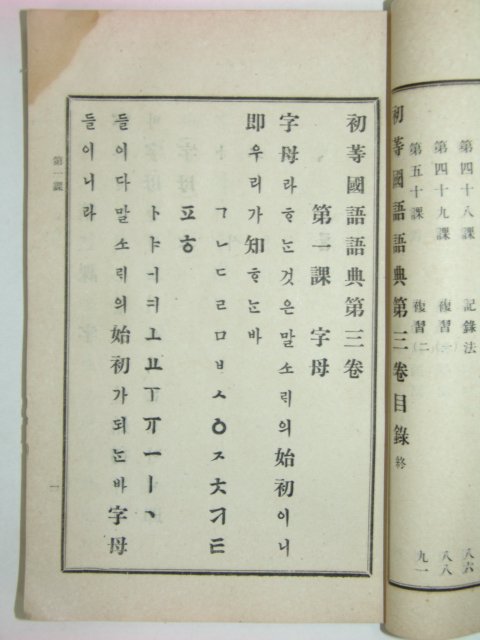 第四十八課 記錄法 八六
第四十九課 複習(一) 八八
第五十課 複習(二) 九一
初等國語語典第三卷目錄 終
初等國語語典第三卷
第一課 字母
字母라ᄒᆞᄂᆞᆫ것은말소ᄅᆡ의始初이니
即우리가知ᄒᆞᄂᆞᆫ바
ㄱㄴㄷㄹㅁㅂㅅㅇㅈㅊㅋㅌ
ㅍㅎ
ㅏㅑㅓㅕㅗㅛㅜㅠㅡㅣㆍ
들이다말소ᄅᆡ의始初가되ᄂᆞᆫ바字母
들이니라
第一課
一